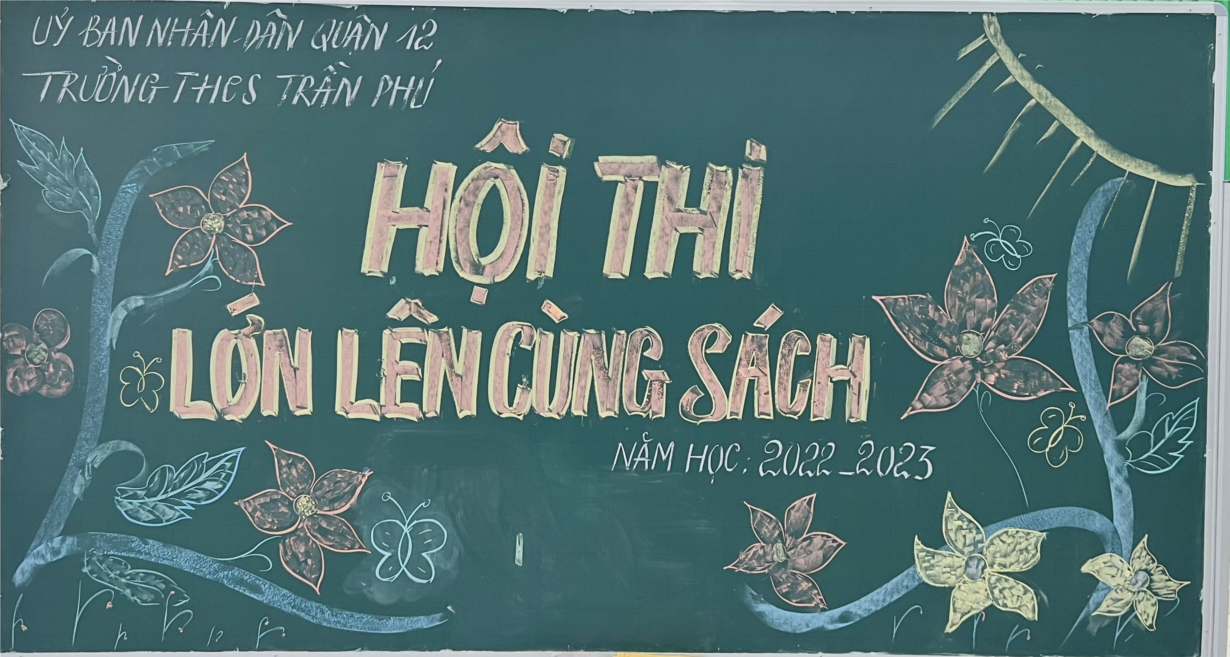 UỶ BAN NHÂN DÂN QUẬN 12
TRƯỜNG THCS TRẦN PHÚ
HỘI THI
LỚN LÊN CÙNG SÁCH
NĂM HỌC: 2022-2023